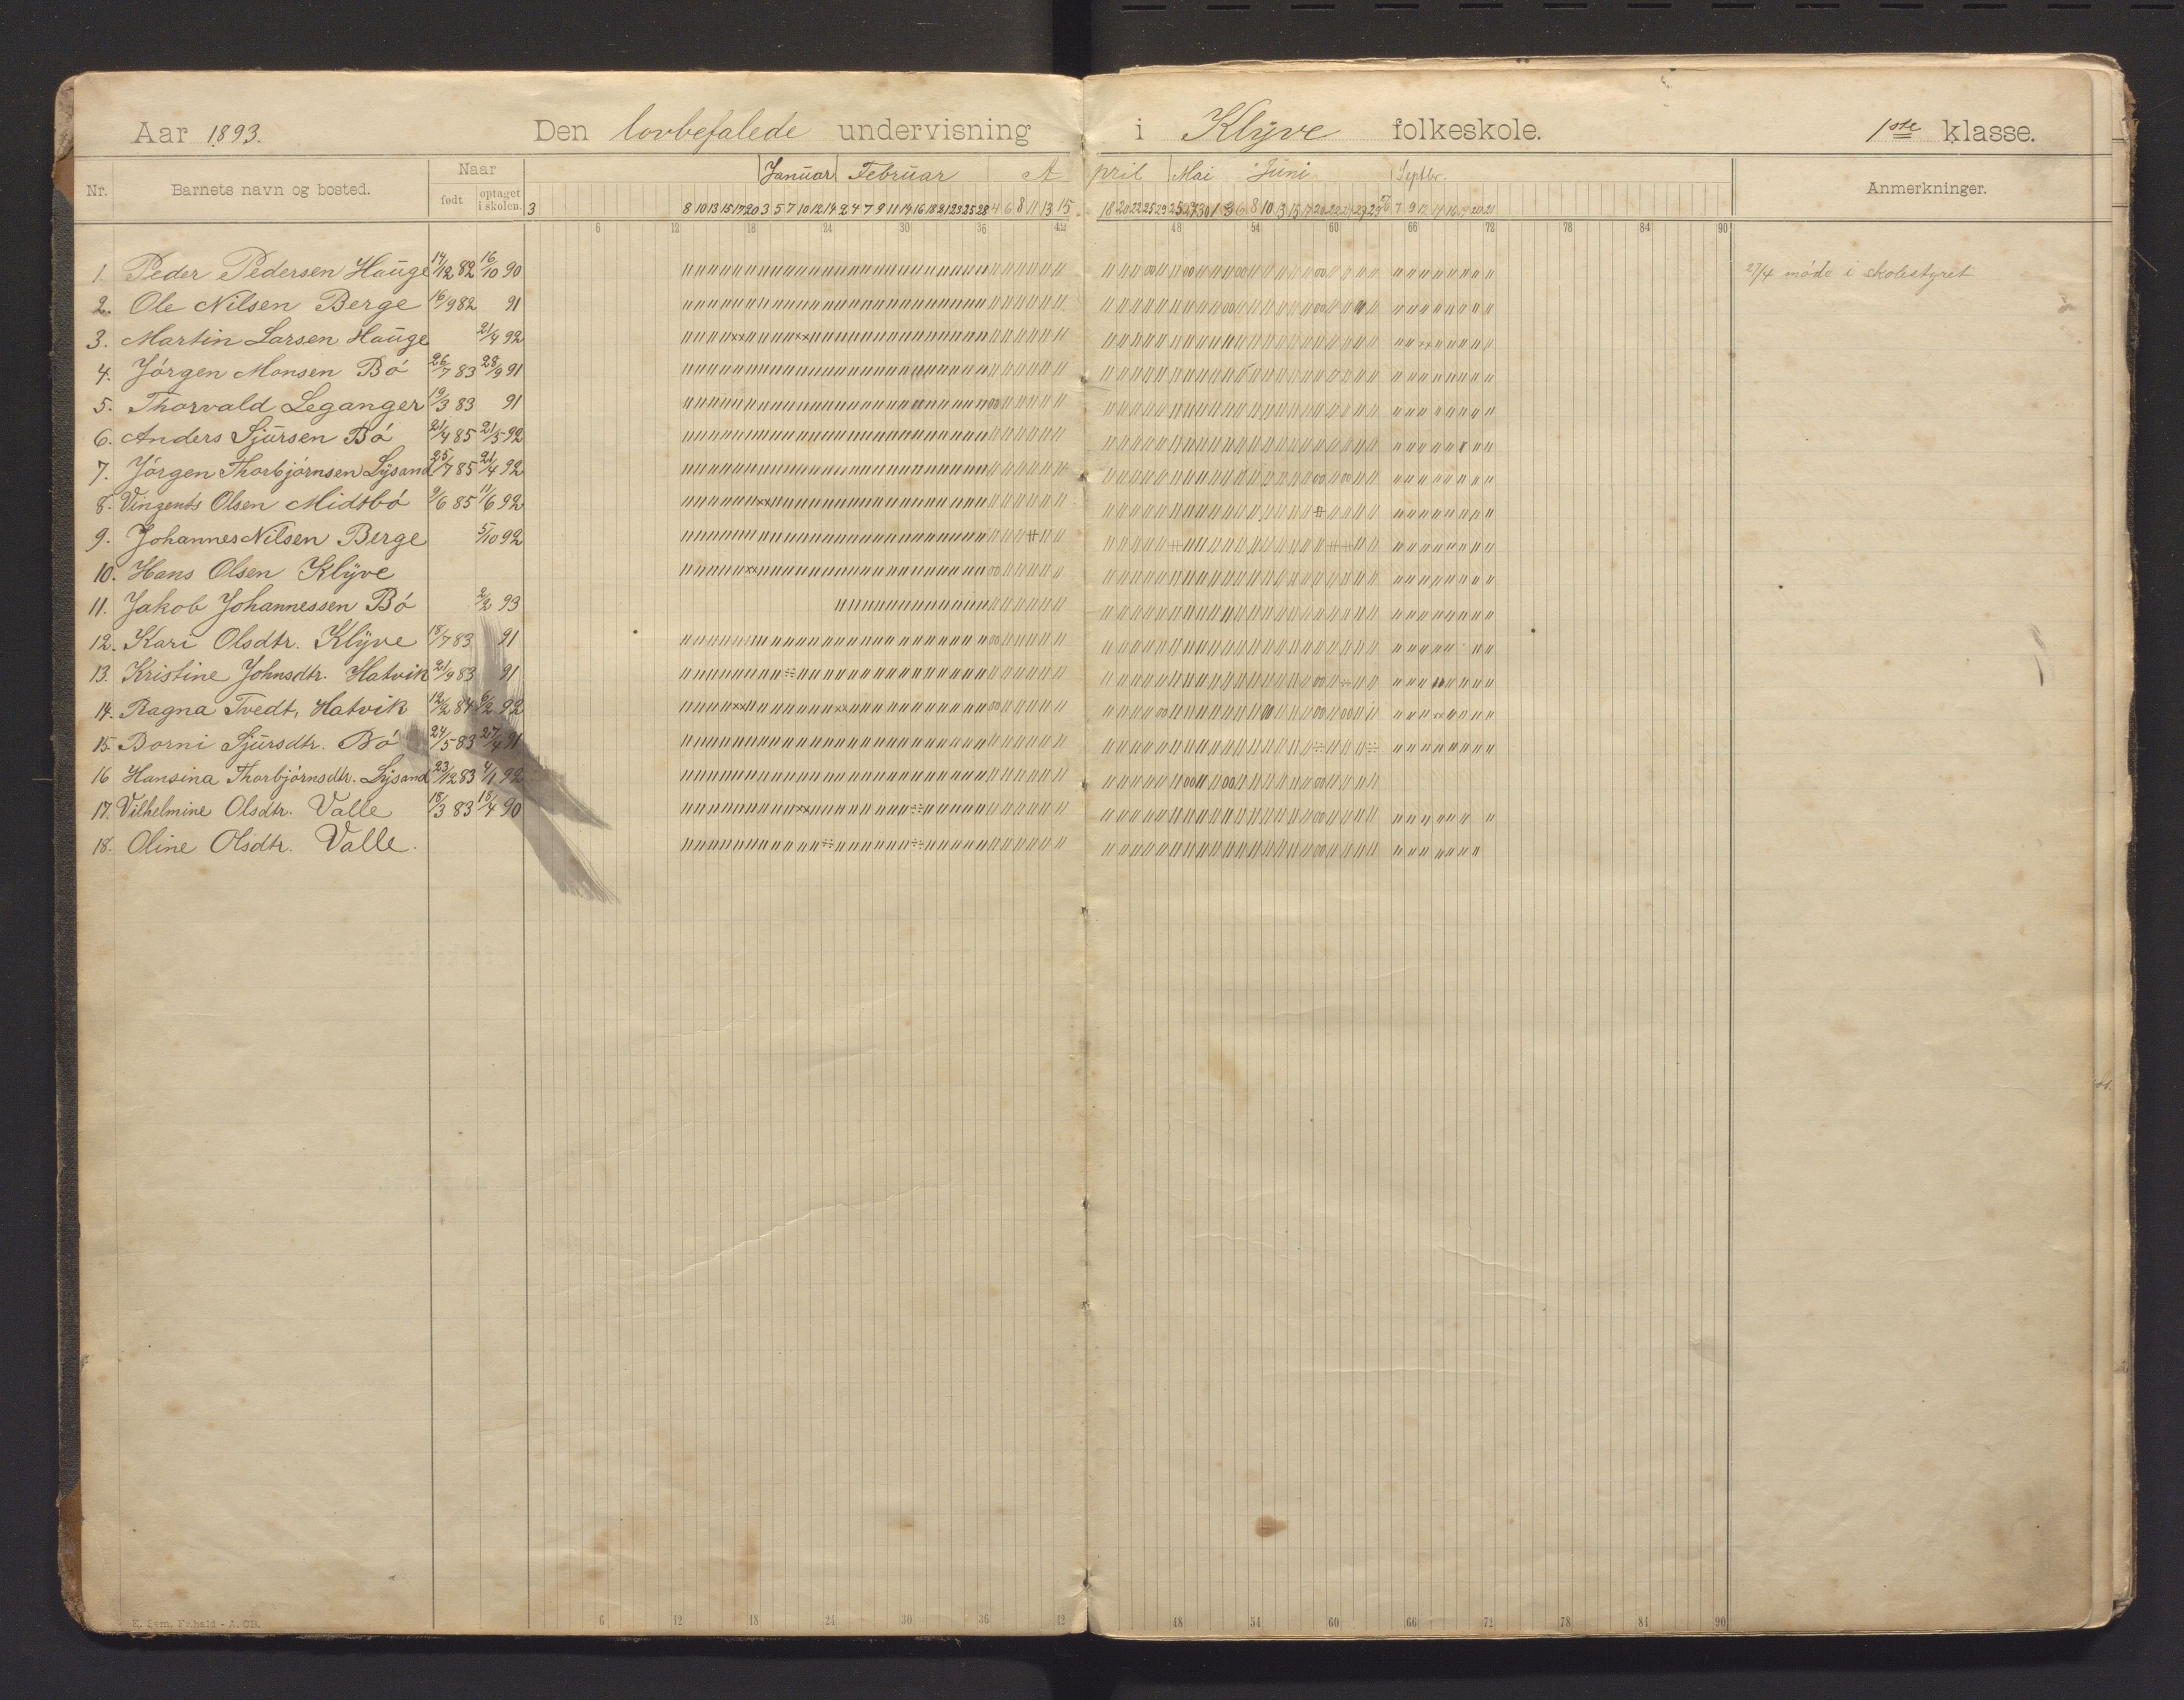 Aar 1893. Den lovbefalede undervisning i Klÿve folkeskole. 1ste klasse.
Nr. Barnets navn og bosted. Naar Januar Februar April Mai Juni Septbr. Anmerkninger.
født optaget i skolen. 3 8 10 13 15 17 20 3 5 7 10 12 14 2 4 7 9 11 14 16 18 21 23 25 28 4 6 8 11 13 15 18 20 22 25 29
6 12 18 24 30 36 42 48 54 60 66 72 78 84 90
1. Peder Pedersen Hauge 14/12 82 16/10 90 27/4 møde i skolestyret
2. Ole Nilsen Berge 16/9 82 91
3. Martin Larsen Hauge 21/4 92
4. Jørgen Monsen Bø 26/7 83 28/9 91
5. Thorvald Leganger 19/3 83 91
6. Anders Sjursen Bø 21/4 85 21/5 92
7. Jørgen Thorbjørnsen Lÿsand 25/7 85 21/4 92
8. Vingents Olsen Midtbø 9/6 85 11/6 92
9. Johannes Nilsen Berge 5/10 92
10. Hans Olsen Klÿve
11. Jakob Johannessen Bø 2/2 93
12. Kari Olsdtr. Klÿve 18/7 83 91
13. Kristine Johnsdtr. Hatvik 21/9 83 91
14. Ragna Tvedt, Hatvik 12/2 84 6/2 92
15. Borni Sjursdtr. Bø 24/5 83 27/4 91
16 Hansina Thorbjørnsdtr. Lÿsand 23/12 83 4/1 92
17. Vilhelmine Olsdtr. Valle 18/3 83 18/4 90
18. Oline Olsdtr. Valle.
6 12 18 24 30 36 42 48 54 60 66 72 78 84 90